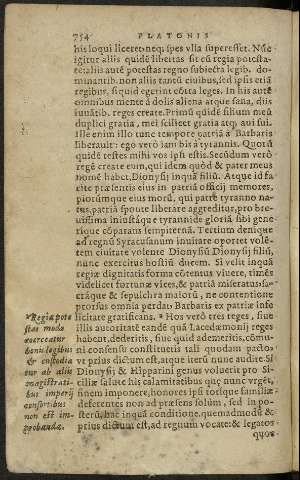 754 PLATONIS
his loqui liceret: neq; spes vlla superesset. Nūc
igitur aliis quidē libertas sit cū regia potesta-
te: aliis autē potestas regno subiecta legib. do-
minantib. non aliis tantū ciuibus, sed ipsis etiā
regibus, si quid egerint cōtra leges. In his autē
omnibus mente à dolis aliena atque sana, diis
iuuātib. reges create. Primū quidē filium meū
duplici gratia, mei scilicet gratia atq; aui sui.
Ille enim illo tunc tempore patriā à Barbaris
liberauit: ego verò iam bis à tyrannis. Quorū
quidē testes mihi vos ipsi estis. Secūdum verò
regē create eum, qui idem quòd & pater meus
nomē habet, Dionysij inquā filiū. Atque id fa-
cite præsentis eius in patriā officij memores,
piorúmque eius morū, qui patre tyranno na-
tus, patriā sponte liberare aggreditur, pro bre-
uissima iniustáque tyrannide gloriā sibi gene-
rique cōparans sempiternā. Tertium denique
ad regnū Syracusanum inuitare oportet volē-
tem ciuitate volente Dionysiū Dionysij filiū,
nunc exercitus hostiū ducem. Si velit inquā
regiæ dignitatis forma cōtentus viuere, timēs
videlicet fortunæ vices, & patriā miseratus, sa-
cráque & sepulchra maiorū, ne contentione
prorsus omnia perdat: Barbaris ex patriæ infe
licitate gratificans. * Hos verò tres reges, siue
illis autoritatē eandē quā Lacedæmonij reges
habent, dederitis, siue quid ademeritis, cōmu-
ni consensu constituetis tali quodam pacto,
vt prius dictum est, atque iterū nunc audite. Si
Dionysij & Hipparini genus voluerit pro Si-
ciliæ salute his calamitatibus quę nunc vrgēt,
finem imponere, honores ipsi sorique familiæ
deferentes non ad præsens solùm, sed in po-
sterū, hac inquā conditione, quemadmodū &
prius dictum est, ad regnum vocate: & legatos
quos
* Regia pote
stas modo
coerceatur
bonis legibus
& custodia
eur ab aliis
magistrati-
bus imperij
consortibus
non est im-
probanda.